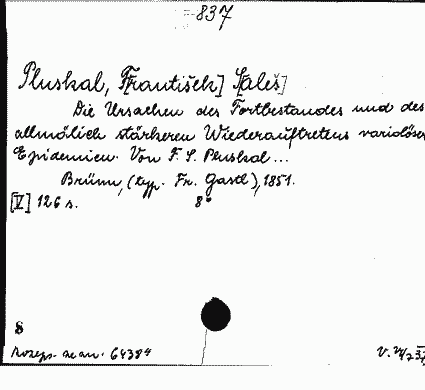 837
Pluskal, F[rantišek] S[aleš]
Die Ursachen des Fortbestandes und des
allmälich stärkeren Wiederauftretens variolöser
Epidemien. Von F. S. Pluskal ...
Brünn, (typ. Fr. Gastl), 1851.
[V] 126 s. 8°
8
64384